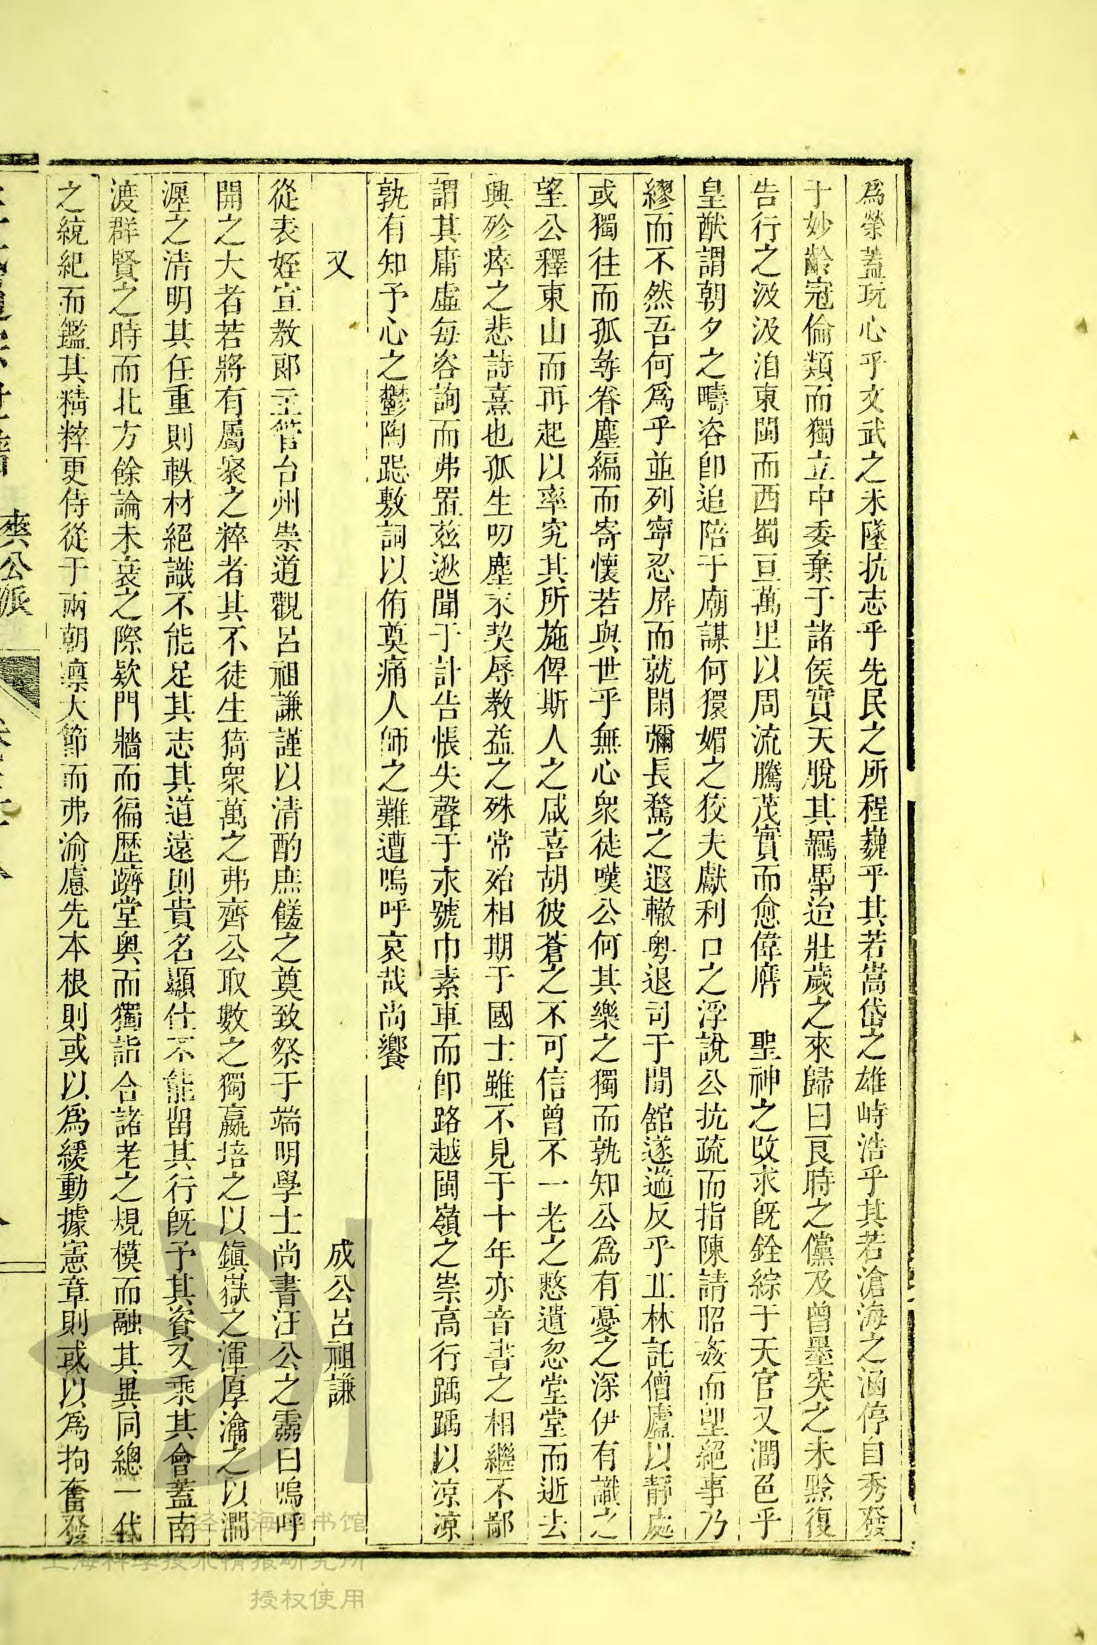 爲榮蓋玩心乎文武之未墜抗志乎先民之所程巍乎其若嵩岱之雄峙浩乎其若滄海之涵停自秀發
于妙齡冠倫類而獨立中委棄于諸侯實天脫其羈馽迨壯歲之來歸曰良時之儻及曾墨突之未黔復
告行之汲汲洎東閩而西蜀亘萬里以周流騰茂實而愈偉膺　聖神之攺求旣銓綜于天官又潤色乎
皇猷謂朝夕之疇咨卽追陪于廟謀何獧媚之狡夫獻利口之浮說公抗疏而指陳請昭姦而堲絕事乃
繆而不然吾何爲乎並列寧忍屏而就閑彌長騖之遐轍粤退司于閒舘遂遄反乎丘林託僧廬以靜處
或獨往而孤尋眷塵編而寄懷若與世乎無心衆徒嘆公何其樂之獨而孰知公爲有憂之深伊有識之
望公釋東山而再起以率究其所施俾斯人之咸喜胡彼蒼之不可信曾不一老之憗遺忽堂堂而逝去
興殄瘁之悲詩熹也孤生叨塵末契辱教益之殊常殆相期于國士雖不見于十年亦音書之相繼不鄙
謂其庸虛每咨詢而弗置茲逖聞于訃告悵失聲于永號巾素車而卽路越閩嶺之崇高行踽踽以凉凉
孰有知予心之鬱陶跽敷詞以侑奠痛人師之難遭嗚呼哀哉尚饗
又　成公呂祖謙
從表姪宣教郞主管台州崇道觀呂祖謙謹以清酌庶饈之奠致祭于端明學士尚書汪公之靈曰嗚呼
開之大者若將有屬窾之粹者其不徒生猗衆萬之弗齊公取數之獨贏培之以鎭嶽之渾厚瀹之以澗
瀍之清明其任重則軼材絕識不能足其志其道遠則貴名顯仕不能留其行旣予其資又乘其會蓋南
渡群賢之時而北方餘論未衰之際欵門牆而徧歷躋堂奥而獨詣合諸老之規模而融其異同總一代
之統紀而鑑其精粹更侍從于兩朝凛大節而弗渝慮先本根則或以爲緩動據憲章則或以爲拘奮發
爽公派
经上海图书馆
上海科学技术情报研究所
授权使用